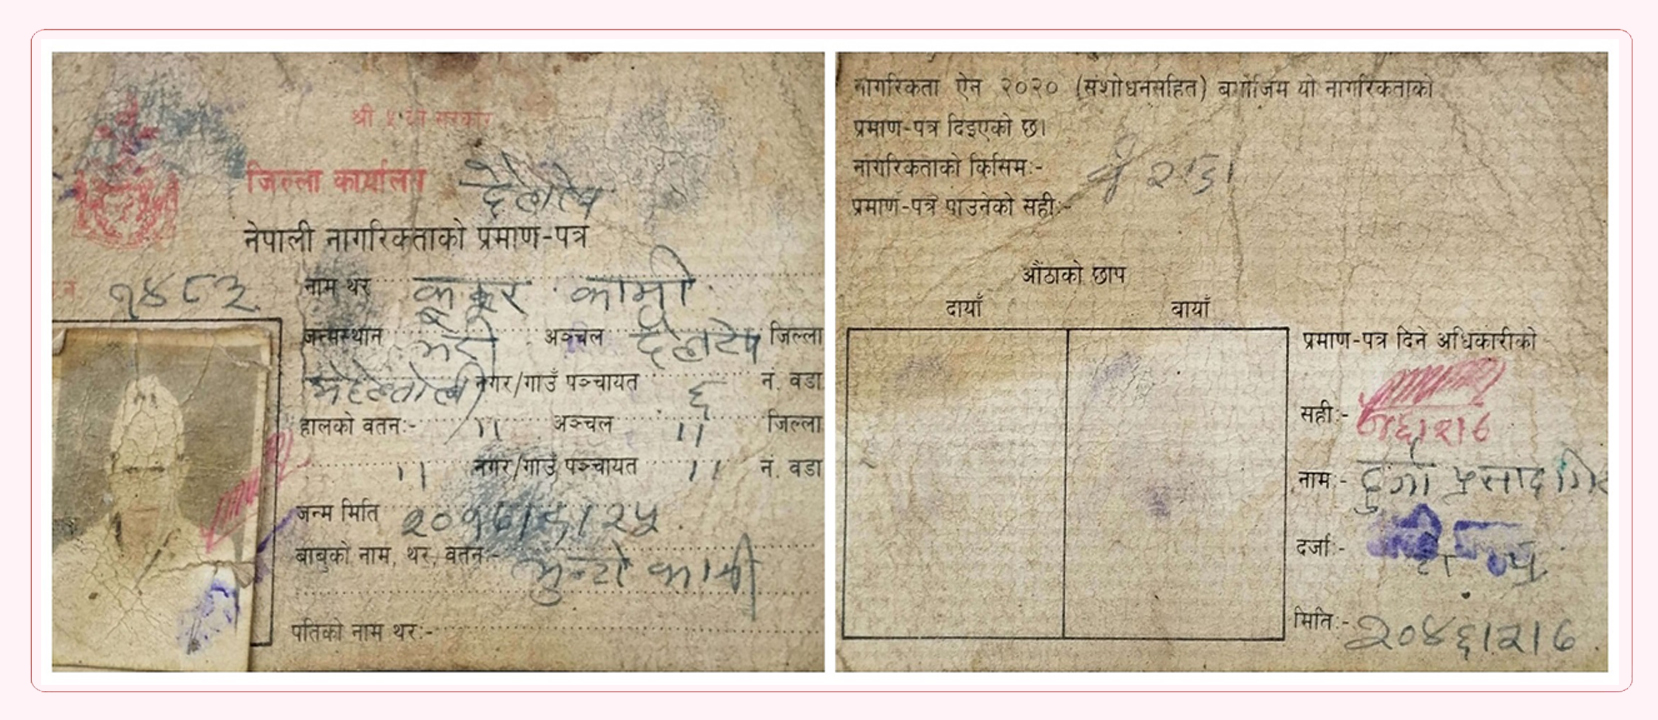 श्री ५ को सरकार
जिल्ला कार्यालय दैलेख
नेपाली नागरिकताको प्रमाण-पत्र
नं १४८३
नाम थर कुकुर कामी
जन्मस्थान भेरी अञ्चल दैलेख जिल्ला
नगर/गाउँ पञ्चायत ६ नं. वडा
हालको वतन:- ,, अञ्चल ,, जिल्ला
,, नगर/गाउँ पञ्चायत ,, नं. वडा
जन्म मिति
बाबुको नाम, थर, वतन:- कामी
पतिको नाम थर:-
नागरिकता ऐन २०२० (संशोधनसहित) बमोजिम यो नागरिकताको
प्रमाण-पत्र दिइएको छ।
नागरिकताको किसिम:-
प्रमाण-पत्र पाउनेको सही:-
औंठाको छाप
दायाँ बायाँ
प्रमाण-पत्र दिने अधिकारीको
सही:-
नाम:- दुर्गा प्रसाद
दर्जा:-
मिति:- २०४६।२।७